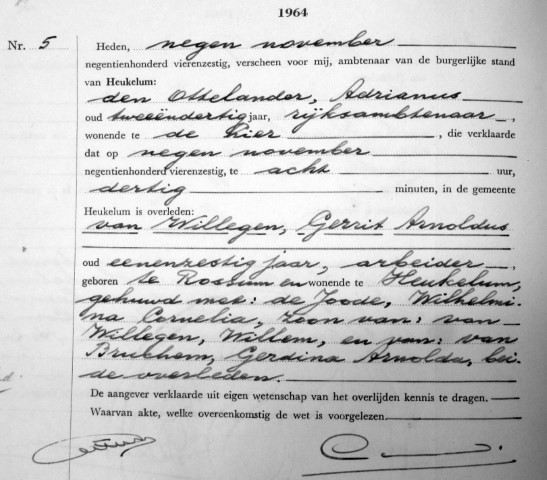 1964
Nr. 5 Heden, negen november
negentienhonderd vierenzestig, verscheen voor mij, ambtenaar van de burgerlijke stand
van Heukelum:
den Ottelander, Adrianus
oud tweeëndertig jaar, rijksambtenaar,
wonende te de hier, die verklaarde
dat op negen november
negentienhonderd vierenzestig, te acht uur,
dertig minuten, in de gemeente
Heukelum is overleden:
van Willegen, Gerrit Arnoldus
oud eenenzestig jaar, arbeider,
geboren te Rossum en wonende te Heukelum,
gehuwd met: de Joode, Wilhelmi-
na Cornelia, zoon van: van
Willegen, Willem, en van: van
Bruchem, Gerdina Arnolda, bei-
de overleden.
De aangever verklaarde uit eigen wetenschap van het overlijden kennis te dragen.
Waarvan akte, welke overeenkomstig de wet is voorgelezen.